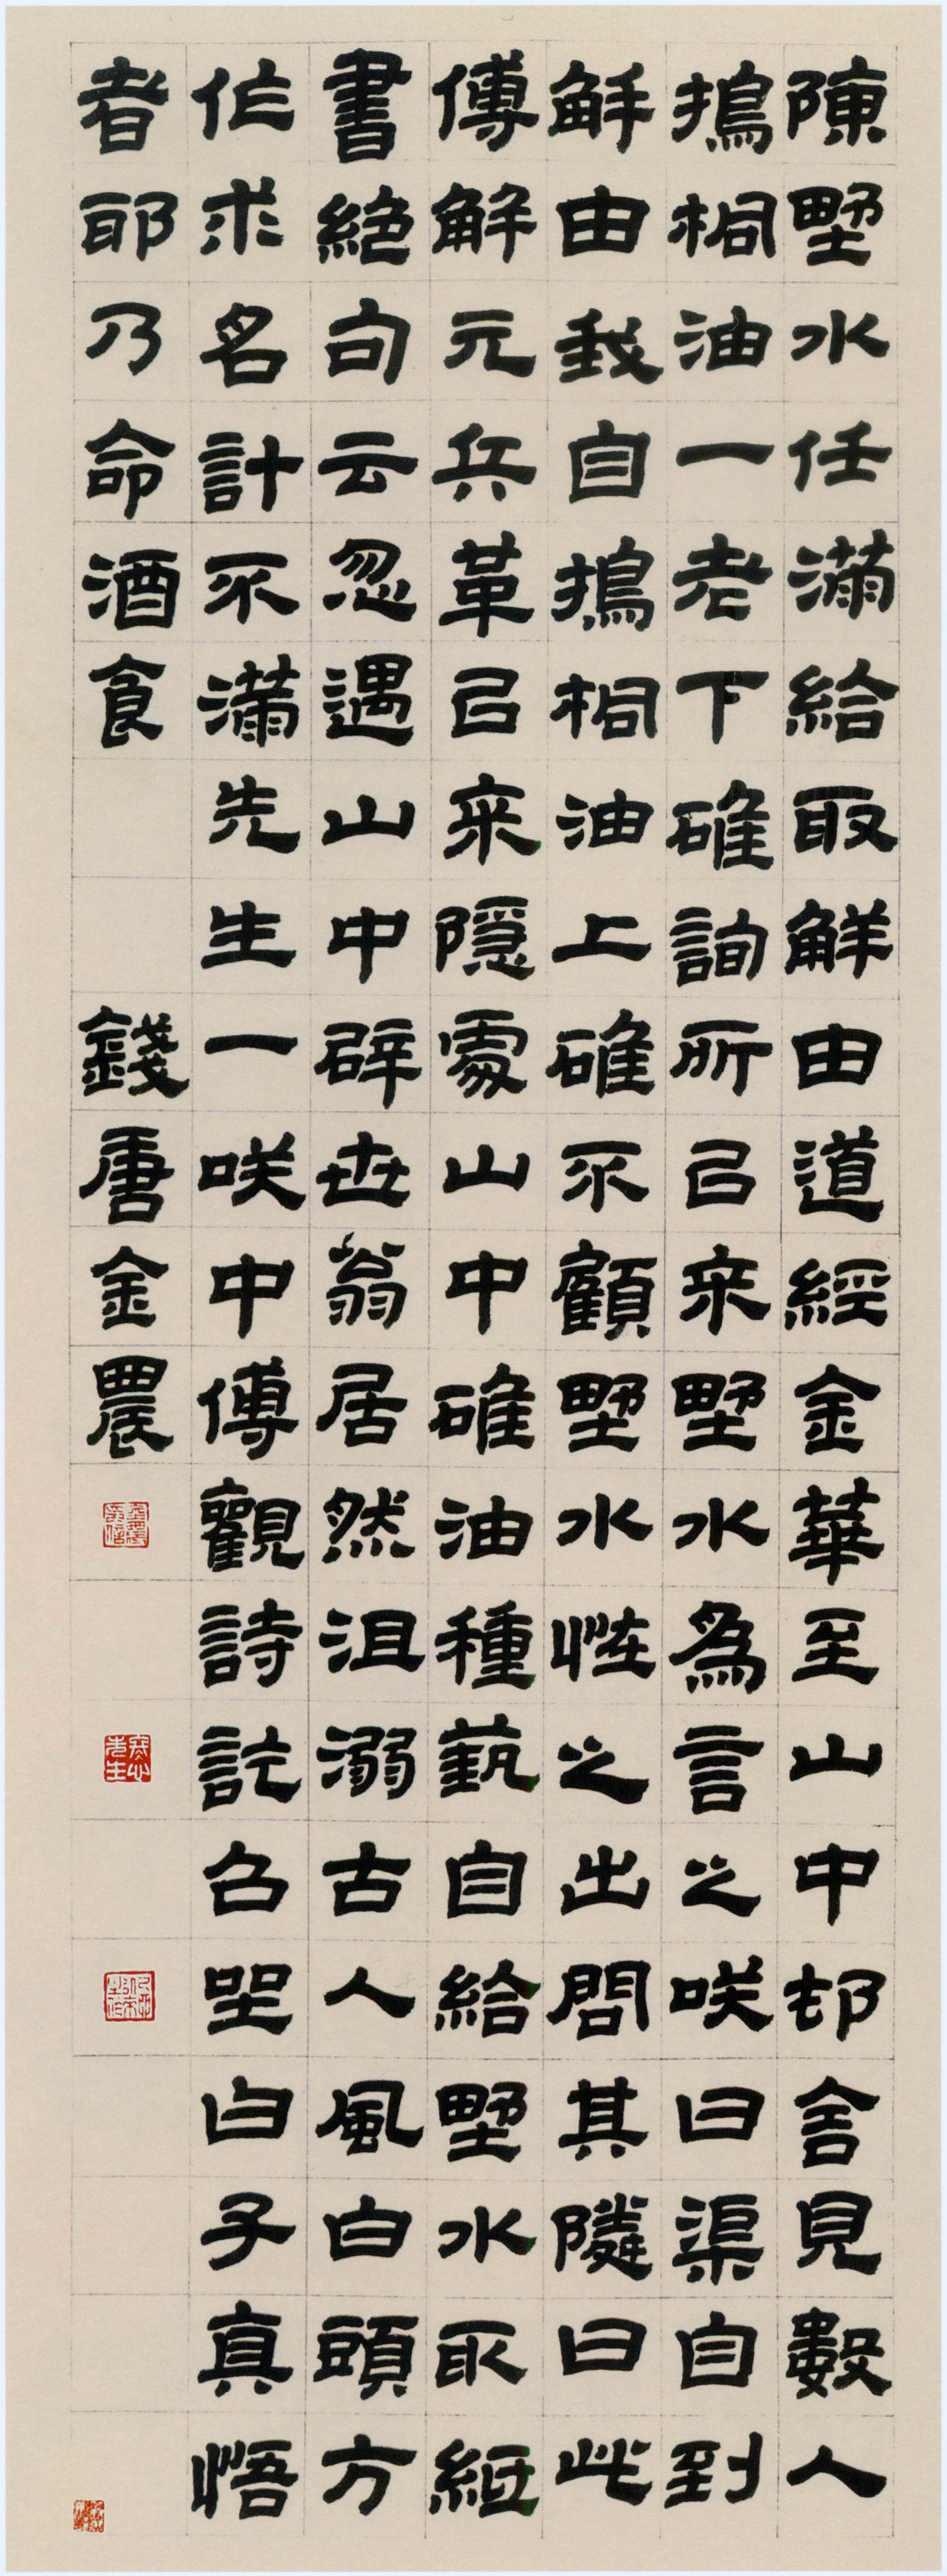 陳野水任滿給取解由道經金華至山中邨舍見數人
搗桐油一老下碓詢所已來野水為言之咲曰渠自到
解由我自搗桐油上碓不顧野水恠之出問其隣曰此
傅解元兵革已來隱處山中碓油種蓺自給野水取紙
書絕句云忽遇山中辟世翁居然沮溺古人風白頭方
作求名計不滿先生一咲中傅觀詩訖召野水曰子真悟
者耶乃命酒食
錢唐金農